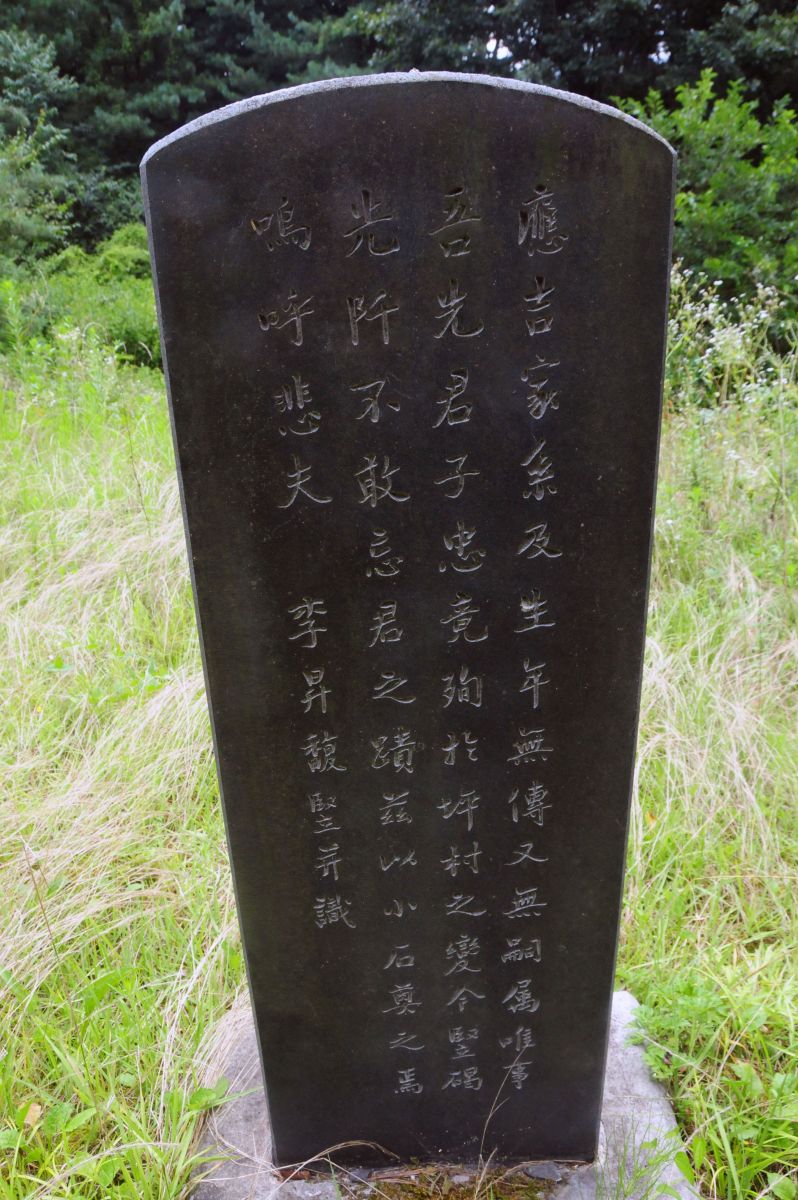 應吉家系及生年無傳又無嗣属唯事
吾先君子忠竟殉於坪村之變今豎碣
先阡不敢忘君之蹟玆以小石奠之焉
嗚呼悲夫 李昇馥豎并識